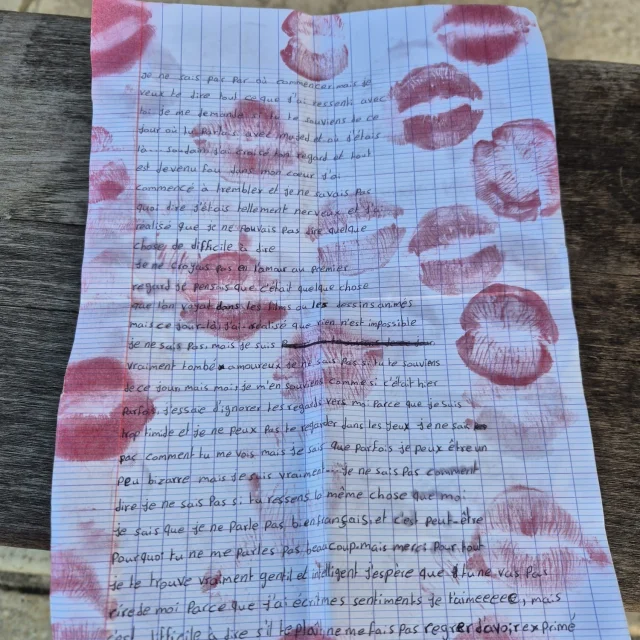 Je ne sais pas par où commencer mais je
veux te dire tout ce que j'ai ressenti avec
toi je me demande si tu te souviens de ce
jour où
là soudain regard et tout
est devenu flou dans mon cœur d'a
commencé à trembler et je ne savais pas
quoi dire j'étais tellement nerveux et j'ai
réalisé que je ne pouvais pas dire quelque
chose de difficile à dire
Je ne croyais pas en l'amour au premier
regard Je pensais que c'était quelque chose
que l'on voit dans les films ou les dessins animés
mais ce jour-là j'ai réalisé que rien n'est impossible
Je ne sais Pas. mais je suis
vraiment tombé amoureux je ne sais Pas si tu te souviens
de ce jour mais moi je m'en souviens comme si c'était hier
Parfois J'essaie d'ignorer tes regards vers moi Parce que je suis
trop timide et je ne peux Pas te regarder dans les yeux Je ne sais
pas comment tu me vois mais Je sais que parfois je peux être un
Peu bizarre mais je suis vraiment... je ne sais Pas comment
dire Je ne sais Pas si tu ressens la même chose que moi
Je sais que Je ne Parle Pas bien français et c'est peut-être
Pourquoi tu ne me Parles Pas beaucoup mais merci Pour tout
Je te trouve vraiment gentil et intelligent J'espère que tu ne vas Pas
rire de moi Parce que j'ai écrit mes sentiments Je t'aimeeeee, mais
c'est difficile à dire s'il te plaît ne me fais Pas regretter d'avoir exprimé